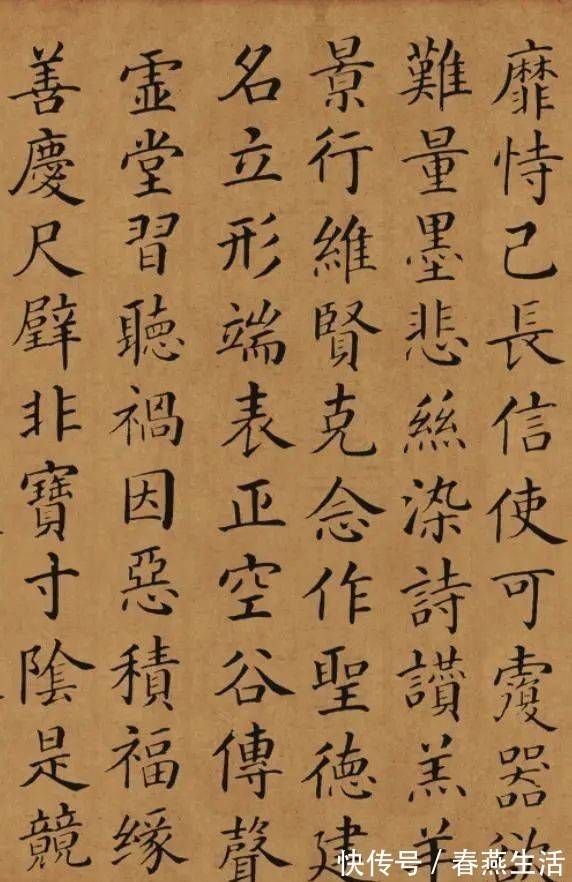 靡恃己長信使可覆器欲
難量墨悲絲染詩讚羔羊
景行維賢克念作聖德建
名立形端表正空谷傳聲
虛堂習聽禍因惡積福緣
善慶尺璧非寶寸陰是競
快传号 / 春燕生活